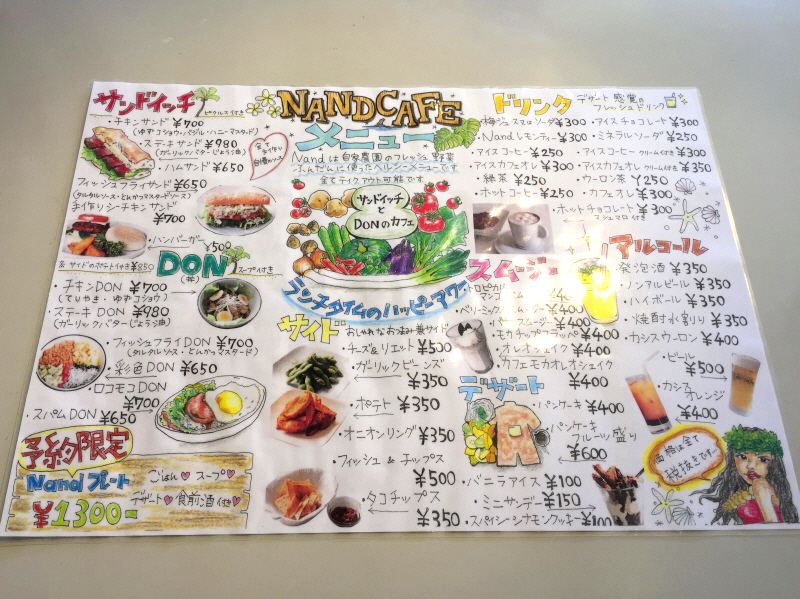 サンドイッチ ピクルス付き
・チキンサンド ¥700
(ゆずコショウ・バジル・ハニーマスタード)
・ステーキサンド ¥980
(ガーリックバターじょう油)
・ハムサンド ¥650
フィッシュフライサンド ¥650
(タルタルソース・とんかつマスタードソース)
手作りシーチキンサンド
¥700
・ハンバーガー ¥500
全て
手作り
自慢のソース
DON スープ付き
(丼)
・チキンDON ¥700
(てりやき・ゆずコショウ)
・ステーキDON ¥980
(ガーリックバターじょう油)
・フィッシュフライDON ¥700
(タルタルソース・とんかつマスタード)
・彩色DON ¥650
・ロコモコDON
¥700
・スパムDON ¥650
予約限定
Nandプレート
¥1300-
ごはん スープ
デザート 食前酒付き
NANDCAFE
メニュー
Nandは自家農園のフレッシュ野菜
ふんだんに使ったヘルシーメニューです
全てテイクアウト可能です
サンドイッチ
と
DONのカフェ
ランチタイムのハッピーアワー
サイド おしゃれなお酒の一番サイド
・チーズ&リエット ¥500
・ガーリックビーンズ
¥350
・ポテト ¥350
・オニオンリング ¥350
・フィッシュ&チップス
¥500
・タコチップス
¥350
ドリンク デザート感覚の
フレッシュドリンク
・梅ジュース又はソーダ ¥300
・Nandレモンティー ¥300
・アイスコーヒー ¥250
・アイスカフェオレ ¥300
・緑茶 ¥250
・ホットコーヒー ¥250
・アイスチョコレート ¥300
・ミネラルソーダ ¥250
・アイスコーヒー クリーム付き ¥350
・アイスカフェオレ クリーム付き ¥350
・ウーロン茶 ¥250
・カフェオレ ¥300
・ホットチョコレート ¥300
マシュマロ付き
スムージー
・トロピカル
マンゴ
・モカチップフラッペ ¥400
・オレオシェイク ¥400
・カフェモカオレオシェイク
¥400
デザート
・パンケーキ ¥400
・パンケーキ
フルーツ盛り
¥600
・バニラアイス ¥100
・ミニサンデー ¥150
・スパイシーシナモンクッキー ¥100
アルコール
・発泡酒 ¥350
・ノンアルビール ¥350
・ハイボール ¥350
・焼酎水割り ¥350
・カシスウーロン ¥350
・ビール
¥500
・カシス
オレンジ
¥400
価格は全て
税抜きです…